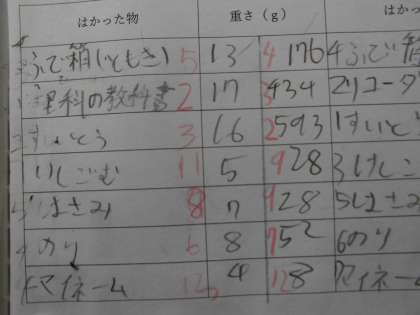 はかった物 重さ(g) はかっ
ふで箱(いともき) 5 13 4 176 4ふで箱
理科の教科書 2 17 3 434 2リコーダ
すいとう 3 16 2 593 1すいと
けしごむ 11 5 9 28 3けしこ
はさみ 8 7 28 5はさみ
のり 6 8 7 52 6のり
マイネーム 12 4 128 マイネーム